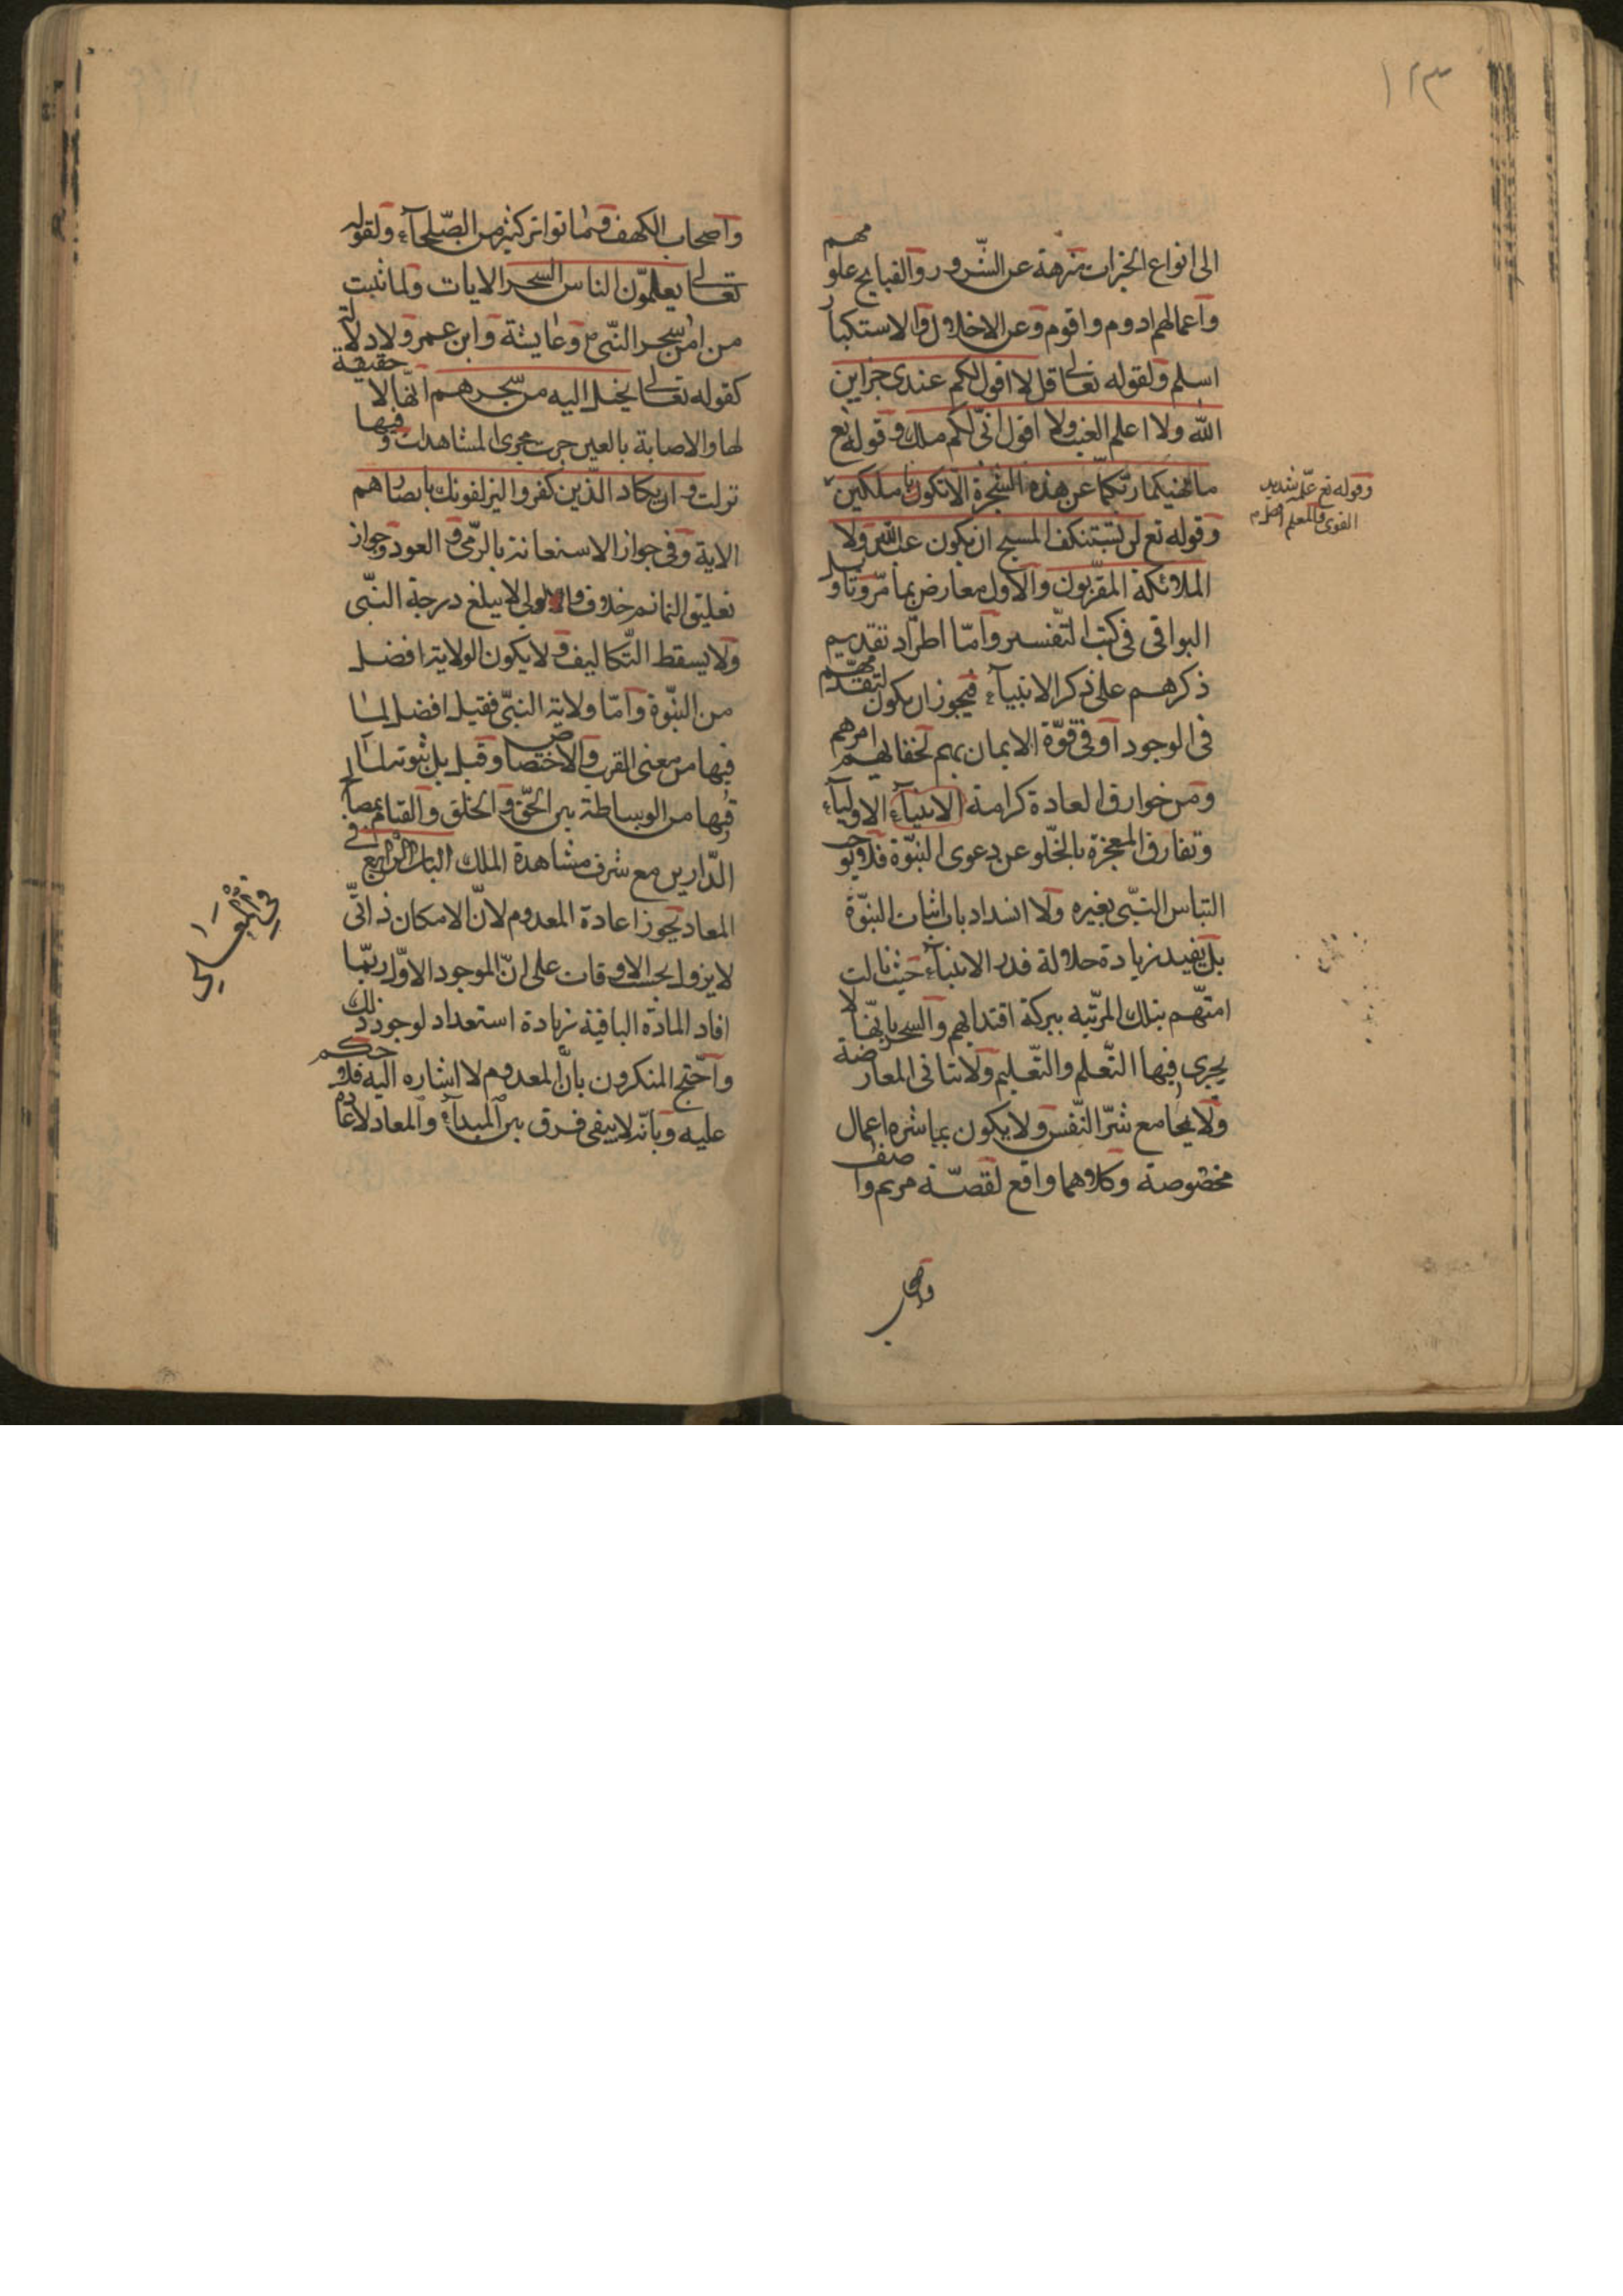 ١٢٣
الى انواع الخيرات منزهة عن الشّرور والقبايح علومهم
واعمالهم ادوم واقوم وعن الاخلال والاستكبار
اسلم ولقوله تعالى قل لا اقول لكم عندى خزاين
الله ولا اعلم الغيب ولا اقول انّى لكم ملك وقوله تع
ما نهيكما ربّكما عن هذه الشّجرة الا ان تكونا ملكين
وقوله تع علّمه شديد
القوى والمعلم افضل م
وقوله تع لن يستنكف المسيح ان يكون عبد الله ولا
الملائكة المقرّبون والاول معارض بما مرّ وتاويل
البواقى فى كتب التّفسير وامّا اطّراد تقديم
ذكرهم على ذكر الانبيآء فيجوز ان يكون لتقدّمهم
فى الوجود او فى قوّة الايمان بهم لخفا امرهم
ومن خوارق العادة كرامة الانبيآء الاوليآء
وتفارق المعجزة بالخلّو عن دعوى النبّوة فلا يوجب
التباس النّبى بغيره ولا انسداد باب اثبات النبّوة
بل يفيد زيادة جلالة قدر الانبيآء حيث نالت
امتّهم بتلك المرتبه ببركة اقتدائهم والسحر بانّها لا
يجرى فيها التّعلم والتّعليم ولا تتاتى المعارضة
ولا يجامع شرّ النّفس ولا يكون بمباشره اعمال
مخصوصة وكلاهما واقع لقصّة مريم واصف
واصحاب
واصحاب الكهف وما تواتر كثير من الصّلحآء ولقوله
تعالى يعلمّون الناس السحر الايات ولما ثبت
من امر سحر النّبى م وعايشة وابن عمر ولا دلالة
كقوله تعالى يخيل اليه من سحرهم انّها لا حقيقة
لها والاصابة بالعين جرت مجرى المشاهدات وفيها
نزلت وان يكاد الّذين كفروا ليزلقونك بابصارهم
الاية وفى جواز الاستعانة بالرّقى و العود وجواز
تعليق التمائم خلاف والولى لا يبلغ درجة النّبى
ولا يسقط التّكاليف ولا يكون الولاية افضل
من النبّوة وامّا ولاية النبّى فقيل افضل لما
فيها من معنى القرب والاختصاص وقيل بل نبوته لما
فيها من الوساطة بين الحقّ و الخلق والقيام بمصالح
الدّارين مع شرف مشاهدة الملك الباب الرابع فى
المعاد يجوز اعادة المعدوم لانّ الامكان ذاتّى
لا يزول بحسب الاوقات على انّ الموجود الاوّل ربّما
افاد المادة الباقية زيادة استعداد لوجود ذلك
واحّتج المنكرون بانّ المعدوم لا اشاره اليه فلا حكم
عليه وبانّه لا يبقى فرق بين المبدآء والمعاد لاعادم